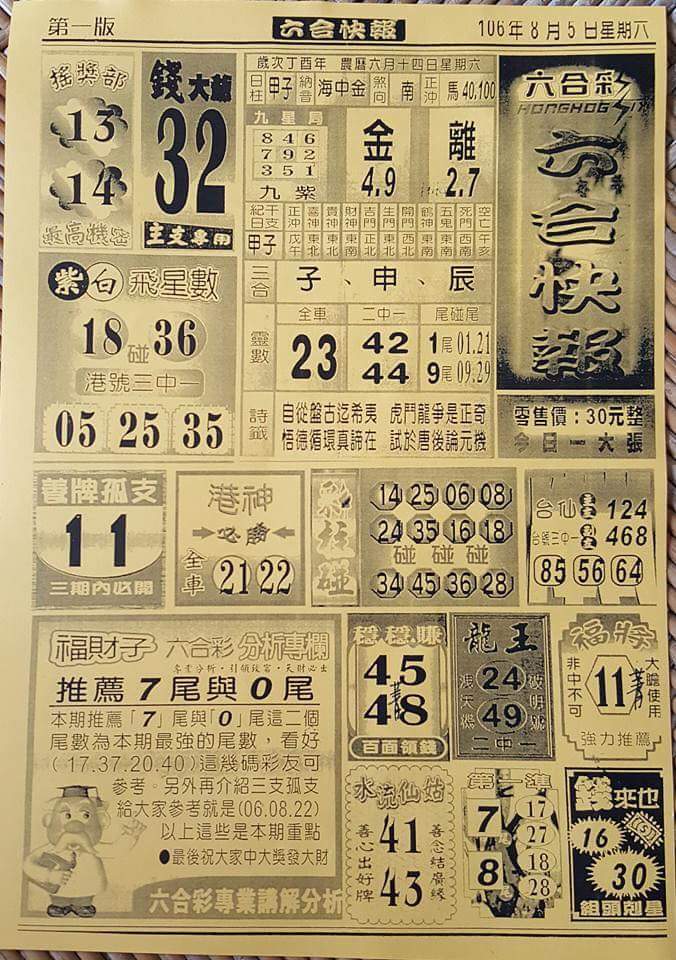 第一版
六合快報
106年8月5日星期六
搖獎部
13
14
最高機密
錢大龍
32
主支專用
歲次丁酉年 農曆六月十四日星期六
日柱 甲子 納音 海中金 煞向 南 正沖 馬40,100
九星局
8 4 6
7 9 2
3 5 1
九紫
金
4.9
離
2.7
紀日 干支 正沖 喜神 貴神 財神 吉門 生門 開門 鶴神 五鬼 死門 空亡
甲子 戊午 東北 東北 東南 正北 東北 西北 東南 東南 西南 戌亥
三合 子、申、辰
靈數
全車
23
二中一
42
44
尾碰尾
1尾 01.21
9尾 09.29
詩籤
自從盤古迄希夷 虎鬥龍爭是正奇
悟德循環真諦在 試於唐後論元機
六合彩
六合快報
零售價：30元整
今日一大張
紫白飛星數
18 碰 36
港號三中一
05 25 35
養牌孤支
11
三期內必開
港神
必勝
全車 21 22
彩柱碰
14 25 06 08
24 35 16 18
碰 碰 碰
34 45 36 28
台仙 124
台號三中一 468
85 56 64
福財子 六合彩 分析專欄
專業分析・引領致富・天財必士
推薦 7 尾與 0 尾
本期推薦「7」尾與「0」尾這二個
尾數為本期最強的尾數，看好
(17.37.20.40)這幾碼彩友可
參考。另外再介紹三支孤支
給大家參考就是(06.08.22)
以上這些是本期重點
●最後祝大家中大獎發大財
六合彩專業講解分析
穩穩賺
45
48
百面領錢
龍王
24
49
二中一
福將
非中不可
11
大膽使用
強力推薦
水流仙姑
善心出好牌
41
43
善念結廣緣
第一準
7 17 27
8 18 28
錢來也
16
30
組頭剋星